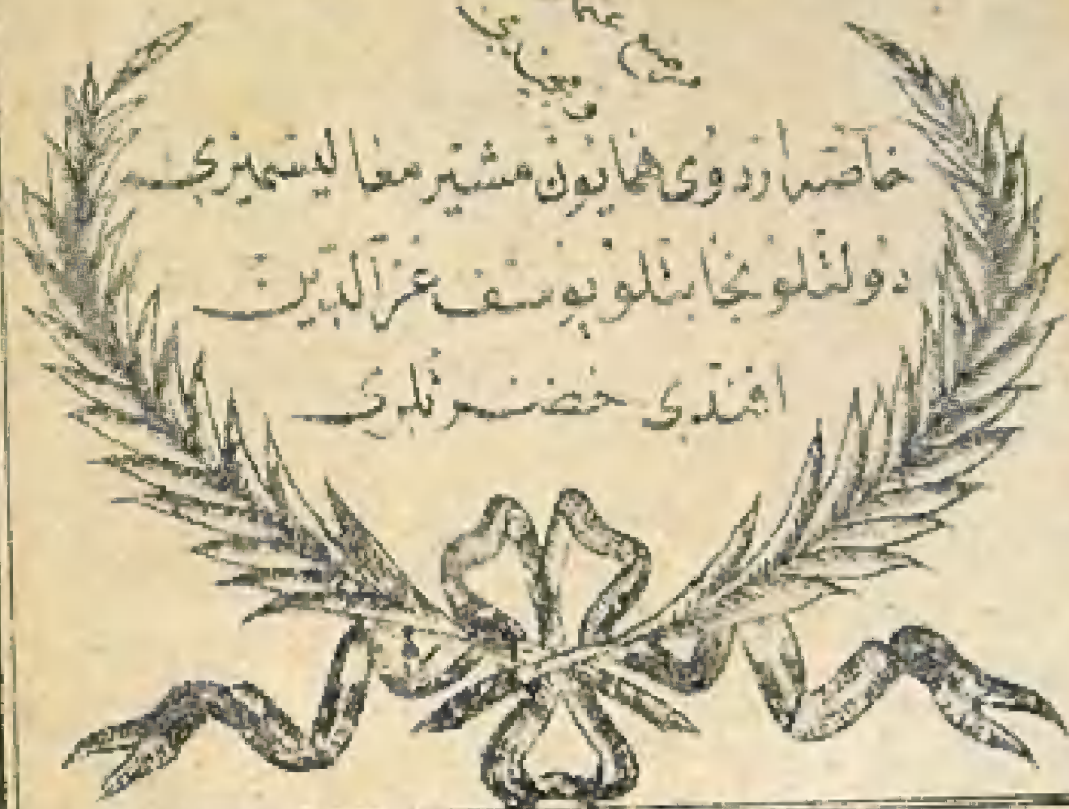 خاصه اردوی همایون مشیر معالیسمیری
دولتلو نجابتلو یوسف عزالدین
افندی حضرتلری